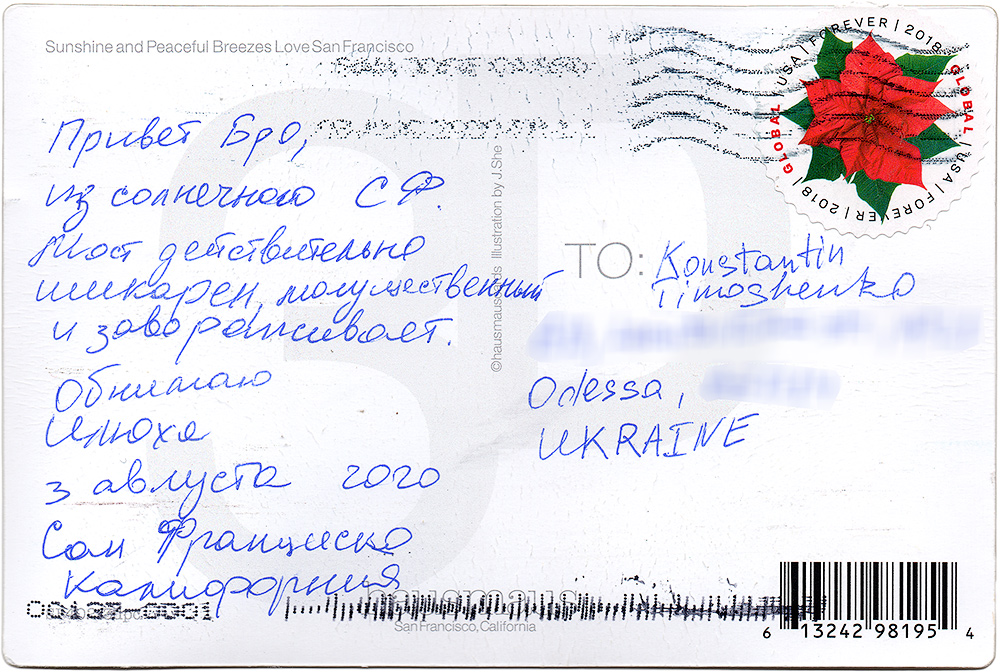 Sunshine and Peaceful Breezes Love San Francisco
USA | FOREVER | 2018
GLOBAL
USA | FOREVER | 2018 |
GLOBAL
Привет Бро,
из солнечного СФ.
Мост действительно
шикарен, могущественный
и завораживает.
Обнимаю
Илюха
3 августа 2020
Сан Франциско
Калифорния
©hausmauscards Illustration by J.She
TO: Konstantin
Timoshenko
Odessa,
UKRAINE
hausmaus
San Francisco, California
6 13242 98195 4